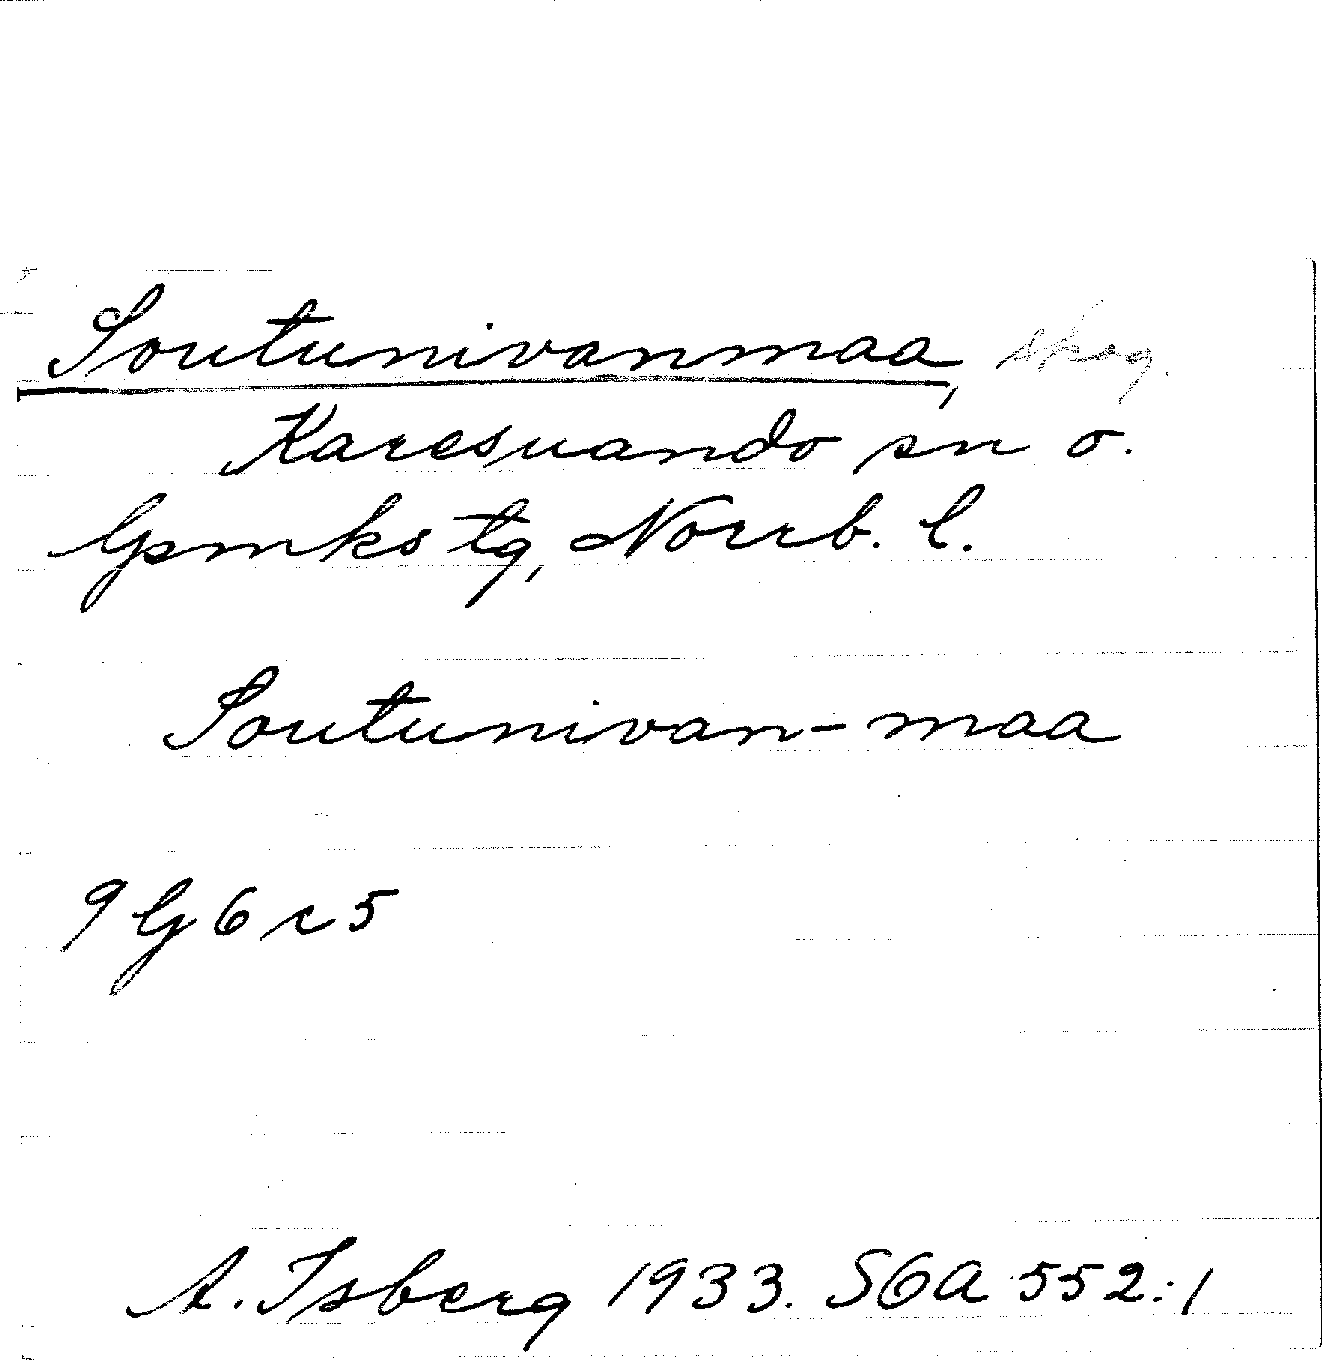 Soutunivanmaa, skog.
Karesuando sn o.
Gsmks tg, Norrb. l.
Soutunivan-maa
9 G 6 c 5
A. Isberg 1933. SOA 552:1